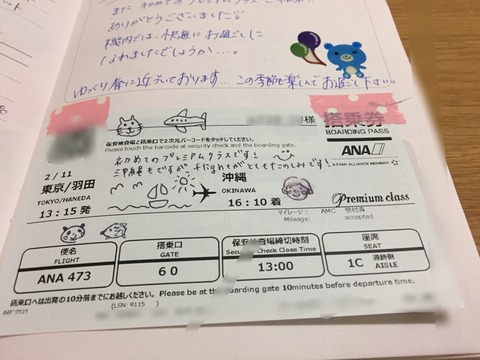 また 初めての プレミアムクラス
ありがとうございました
機内では、快適に お過ごしに
なれましたでしょうか…。
ゆっくり春に近づいております… この季節も楽しんで お過ごし下さい。
様
搭乗券
BOARDING PASS
保安検査場と搭乗口で2次元バーコードをタッチしてください。
Please touch the barcode at security check and the boarding gate.
ANA
A STAR ALLIANCE MEMBER
初めてのプレミアムクラスです!
2/11
東京/羽田
TOKYO/HANEDA
13:15発
沖縄
OKINAWA
16:10着
Premium class
マイレージ: AMC 受付済
Mileage: accepted
便名
FLIGHT
ANA 473
搭乗口
GATE
60
保安検査場締切時刻
Security Check Close Time
13:00
座席
SEAT
1C 通路側
AISLE
搭乗口へは出発の10分前までにお越しください。 Please be at the boarding gate 10minutes before departure time.
(LSN: 9115 )